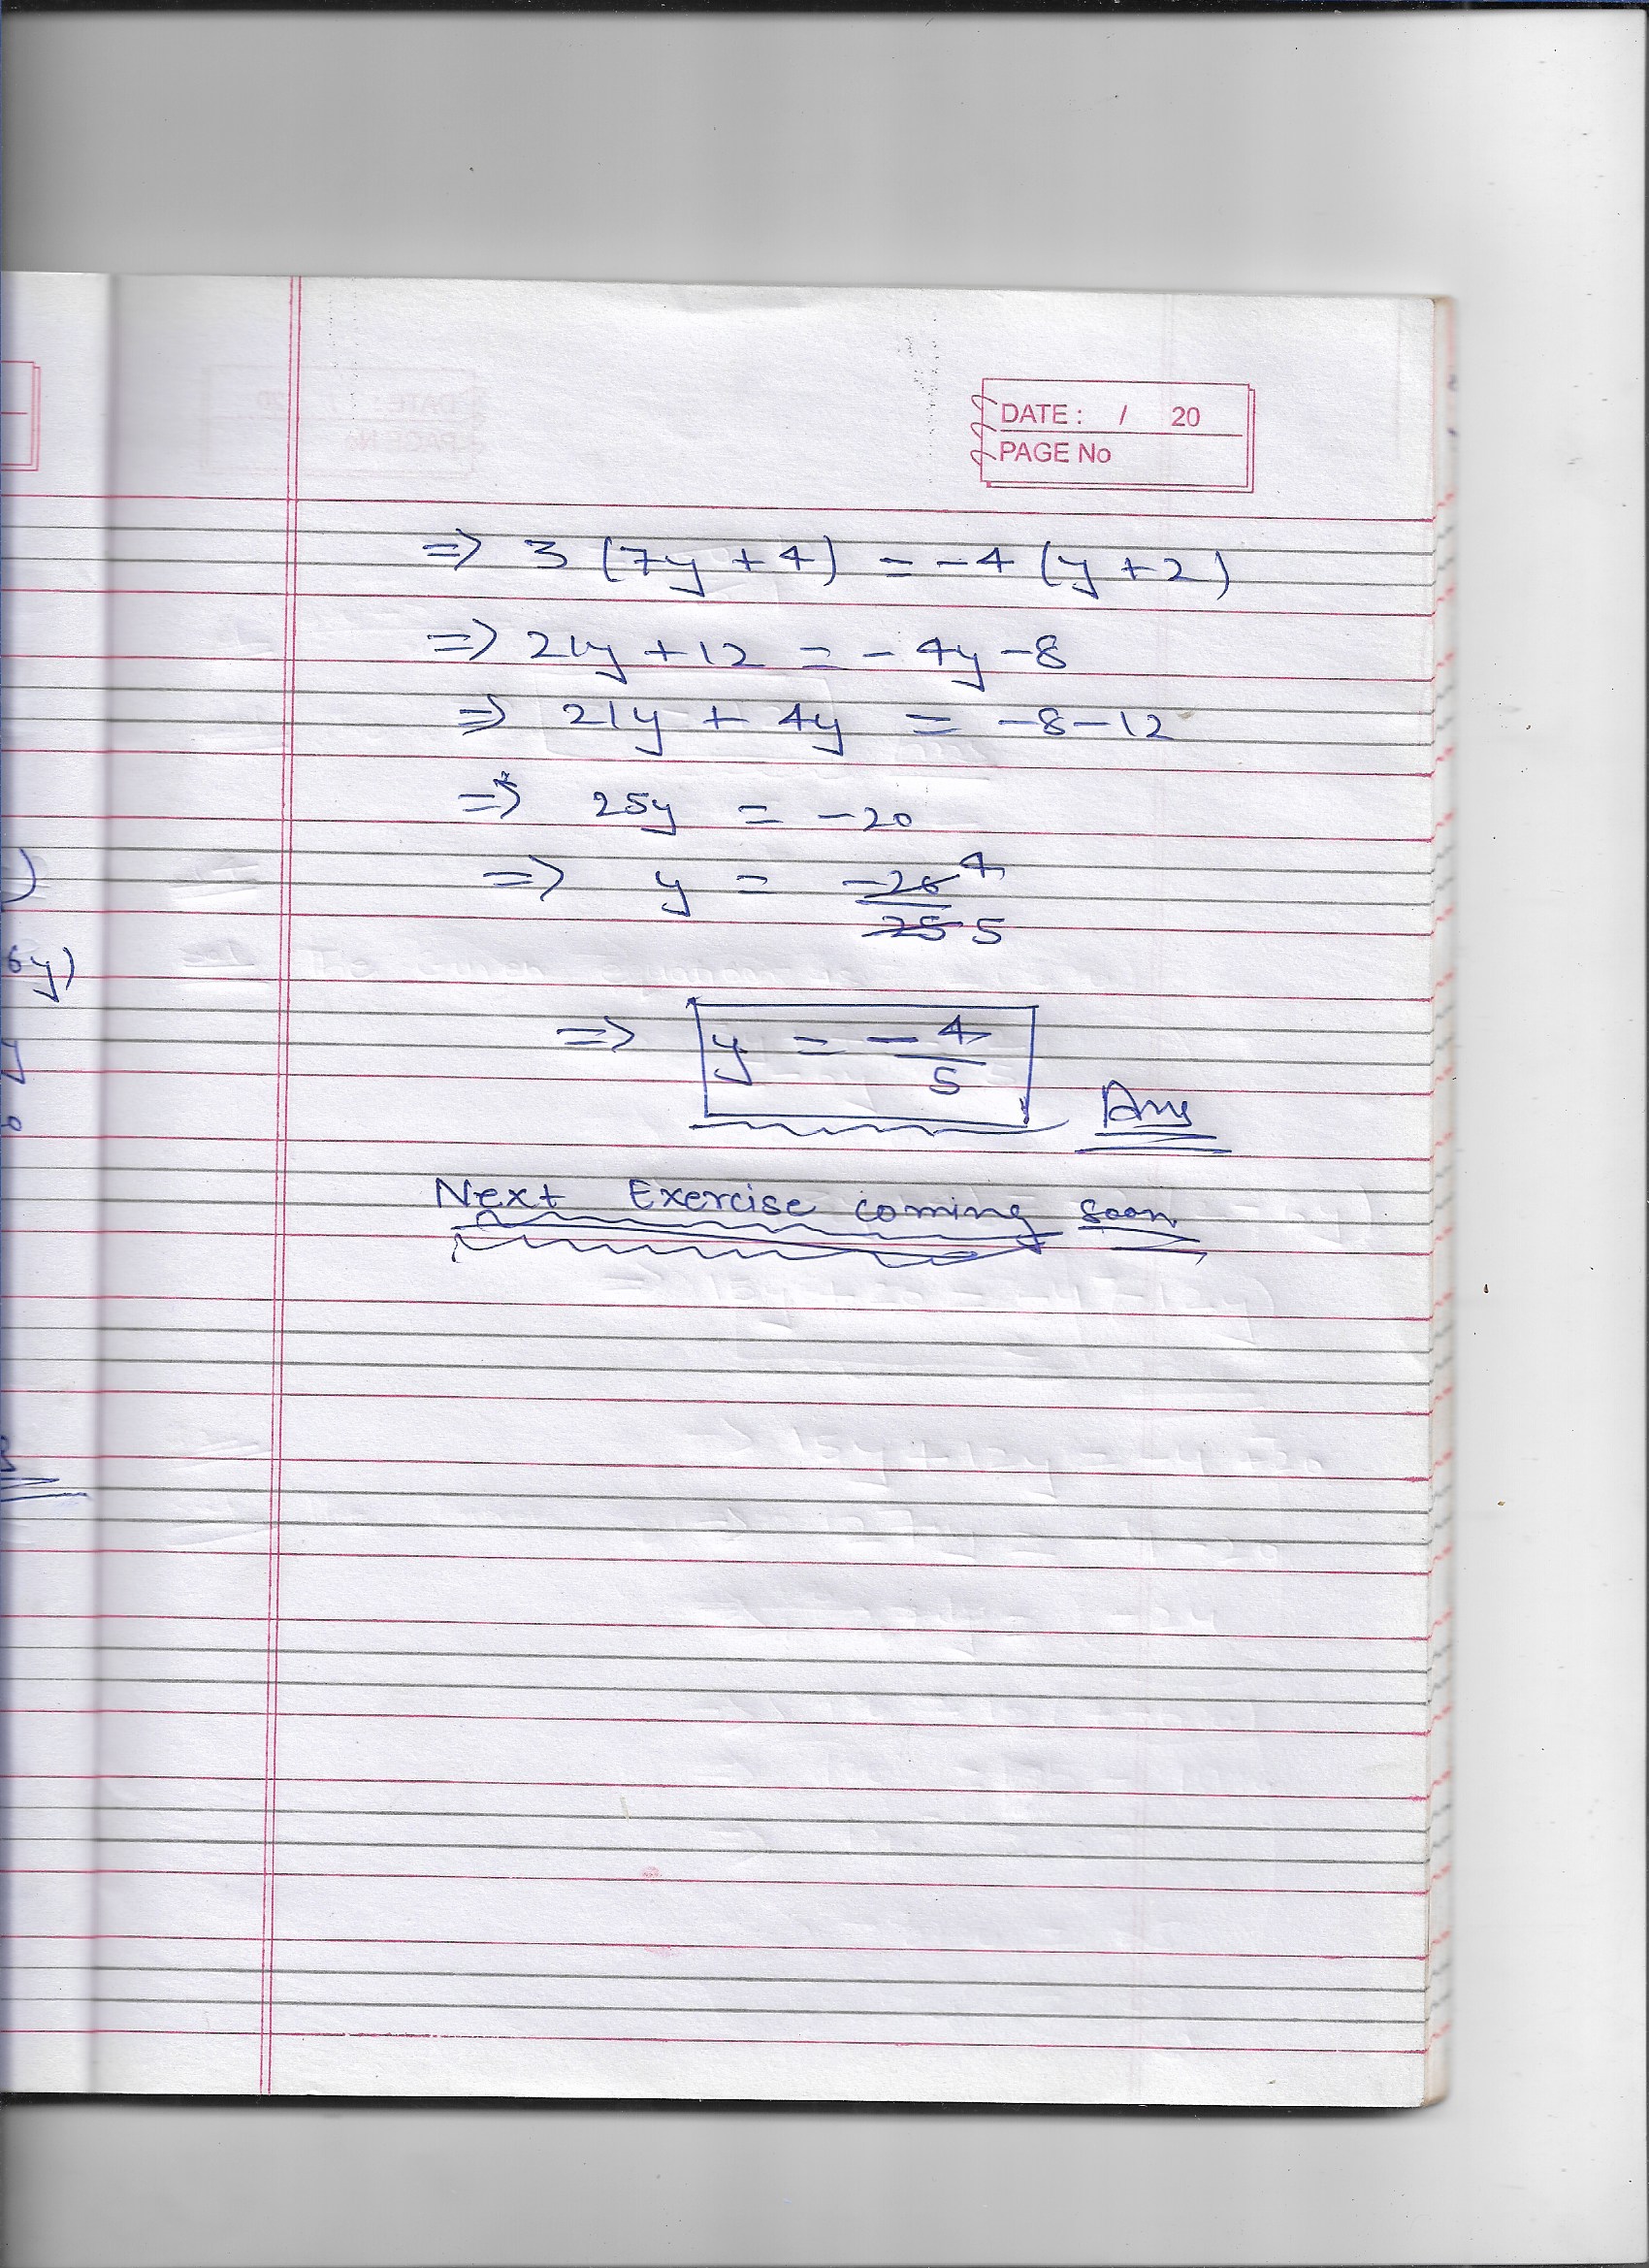 DATE : / 20
PAGE No
=> 3 (7y + 4) = -4 (y + 2)
=> 21y + 12 = - 4y - 8
=> 21y + 4y = -8 - 12
=> 25y = -20
=> y = -20 4
25 5
6y)
=> y = - 4
5
Ans
Next Exercise coming soon